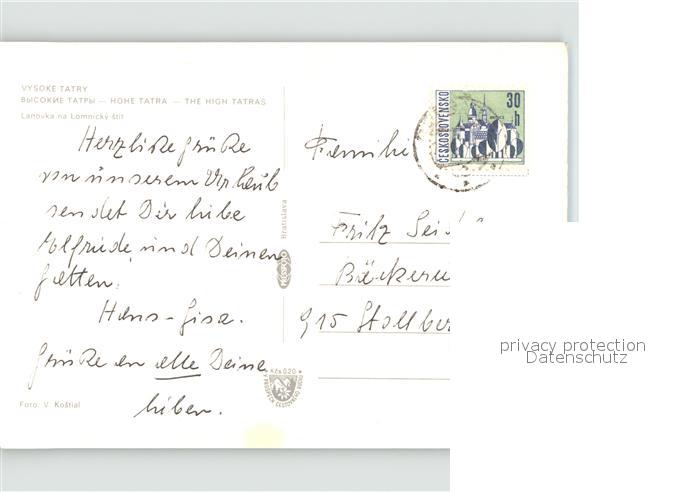 VYSOKE TATRY
ВЫСОКИЕ ТАТРЫ — HOHE TATRA — THE HIGH TATRAS
Lanovka na Lomnický štít
Herzliche Grüße
von unserem Urlaub
sendet Dir liebe
Elfriede und Deinen
Gatten
Hans-Gisa.
Grüße an alle Deine
lieben.
Foto: V. Koštial
Bratislava
Kčs 0,20
ČESKOSLOVENSKO
30
h
Familie
Fritz Seid
Bäckerei
915 Stollber
privacy protection
Datenschutz